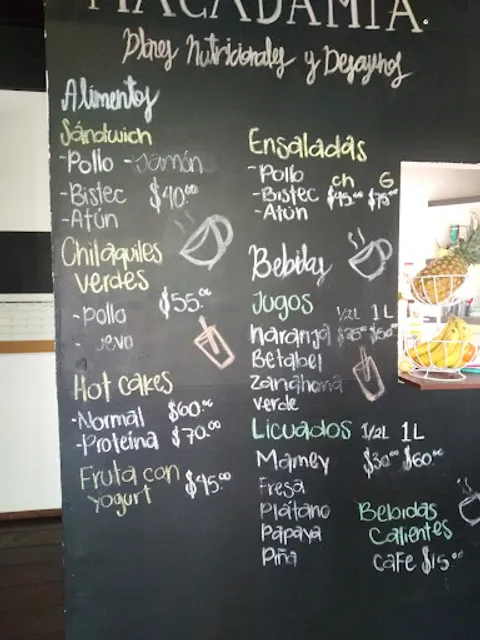 MACADAMIA.
Planes Nutricionales y Desayunos
Alimentos
Sándwich
-Pollo -Jamón
-Bistec $40.00
-Atún
Chilaquiles
verdes
-Pollo $55.00
Hot cakes
-Normal $60.00
-Proteína $70.00
Fruta con
yogurt $45.00
Ensaladas
-Pollo ch G
-Bistec $45.00 $75.00
-Atún
Bebidas
Jugos 1/2L 1L
naranja
Betabel
Zanahoria
verde
Licuados 1/2L 1L
Mamey $30.00 $60.00
Fresa
Plátano
Papaya
Piña
Bebidas
Calientes
café $15.00